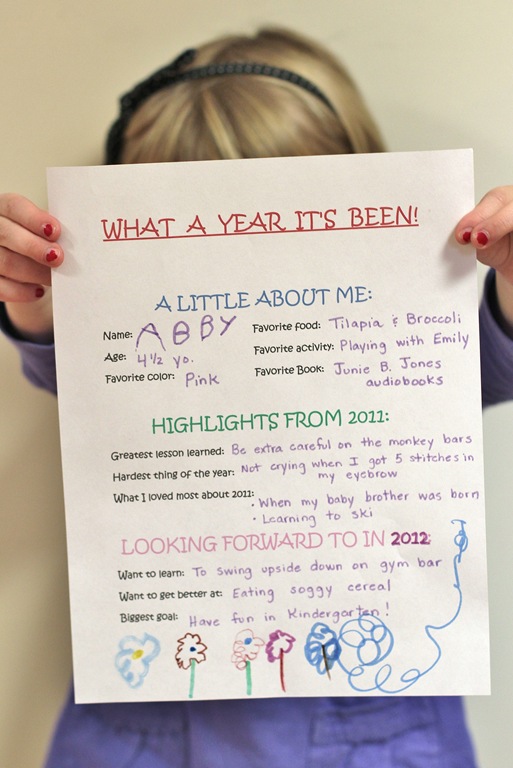 WHAT A YEAR IT'S BEEN!
A LITTLE ABOUT ME:
Name: ABBY
Age: 4 1/2 yo.
Favorite color: Pink
Favorite food: Tilapia & Broccoli
Favorite activity: Playing with Emily
Favorite Book: Junie B. Jones
audiobooks
HIGHLIGHTS FROM 2011:
Greatest lesson learned: Be extra careful on the monkey bars
Hardest thing of the year: Not crying when I got 5 stitches in
my eyebrow
What I loved most about 2011:
• When my baby brother was born
• Learning to ski
LOOKING FORWARD TO IN 2012:
Want to learn: To swing upside down on gym bar
Want to get better at: Eating soggy cereal
Biggest goal: Have fun in Kindergarten!